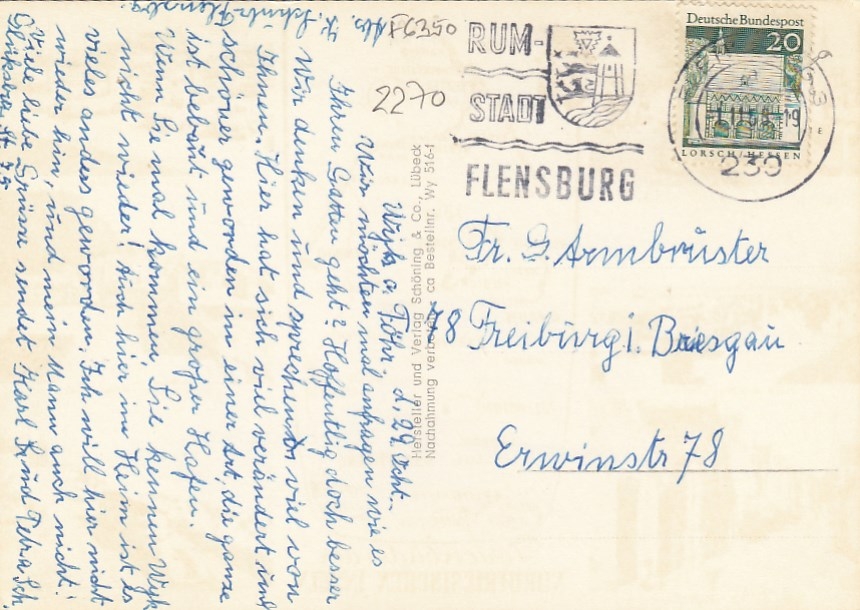 Abs. K. Schultz Flensbg.
F6350
2270
RUM-
STADT
FLENSBURG
Deutsche Bundespost
20
LORSCH/HESSEN
239
Wyk a Föhr d. 29. Okt.
Wir möchten mal anfragen wie es
Ihren Gatten geht? Hoffentlig doch besser
Wir denken und sprechen viel von
Ihnen. Hier hat sich viel verändert und
schöner geworden in einer Art, die ganze
ist bebaut und ein großer Hafen.
Wenn Sie mal kommen, Sie kennen Wyk
nicht wieder! Auch hier im Heim ist es
vieles anders geworden. Ich will hier nicht
wieder hin, und mein Mann auch nicht!
Viele liebe Grüsse sendet Karl S und Petra Sch.
Hersteller und Verlag Schöning & Co., Lübeck
Nachahmung verboten ca Bestellnr. Wy 516-f
Fr. G. Armbruster
78 Freiburg i. Breisgau
Erwinstr 78